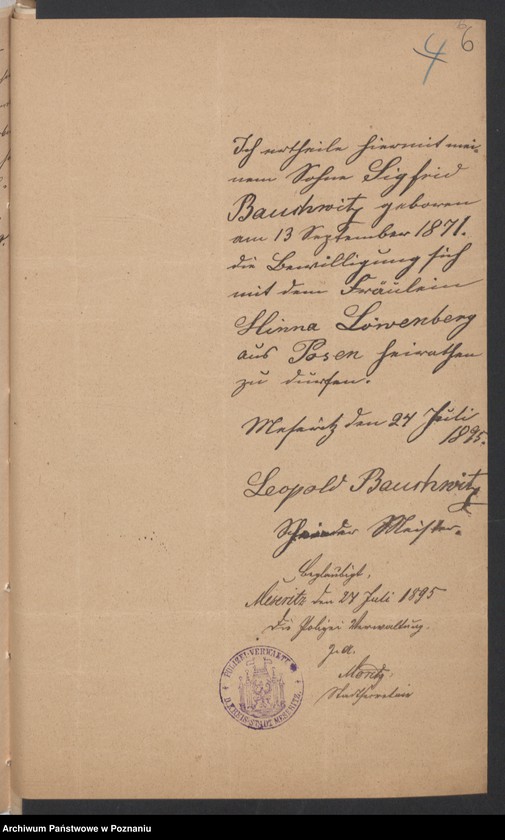 4 6
Ich ertheile hiermit mei-
nem Sohne Sigfrid
Bauchwitz geboren
am 13 September 1871.
die Bewilligung sich
mit dem Fräulein
Hinna Löwenberg
aus Posen heirathen
zu dürfen.
Meseritz den 27 Juli
1895.
Leopold Bauchwitz
Schneider Meister.
Beglaubigt,
Meseritz den 27 Juli 1895
Die Polizei Verwaltung.
J. A.
Stadtsecretair
POLIZEI-VERWALTG
D. KREIS-STADT MESERITZ.
Archiwum Państwowe w Poznaniu